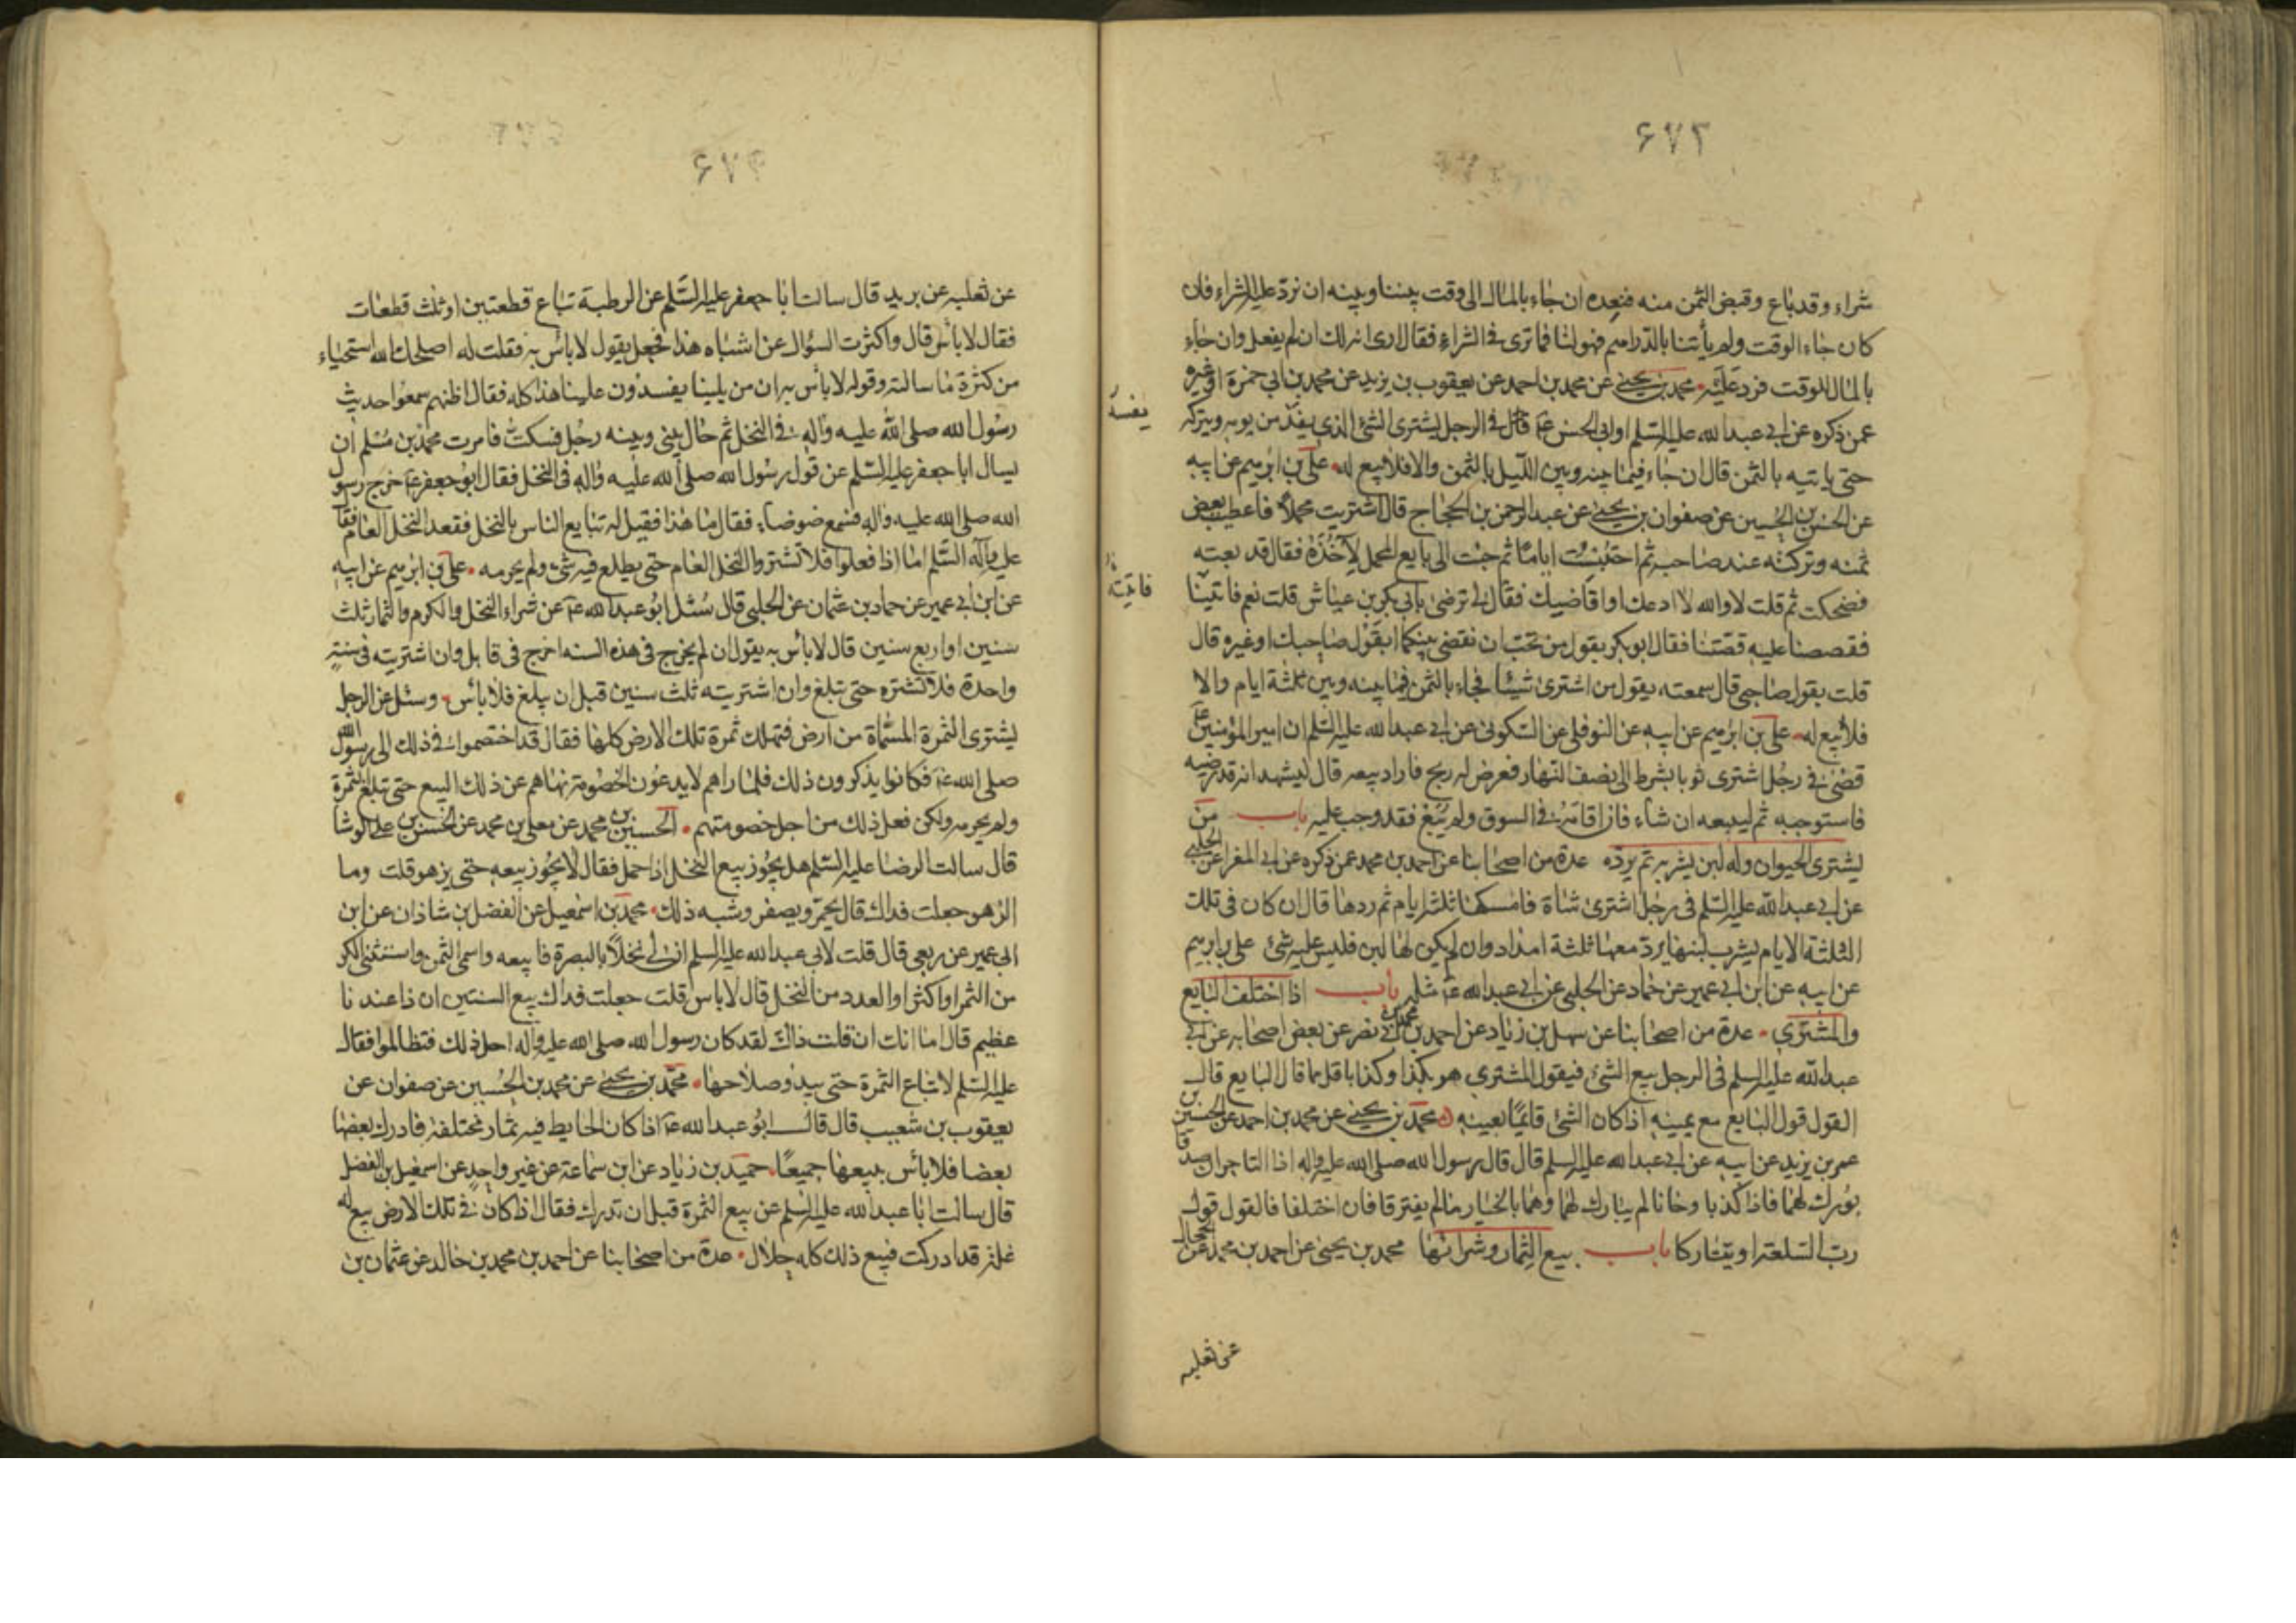 ۶۷۲
شراء وقد باع وقبض الثمن منه فنعده ان جاء بالمال الى وقت بيننا وبينه ان نرد عليه الشراء فان
كان جاء الوقت ولم يأتنا بالدراهم فهو لنا فما ترى في الشراء فقال ارى انه لك ان لم يفعل وان جاء
بالمال للوقت فرد عليه محمد بن يحيى عن محمد بن احمد عن يعقوب بن يزيد عن محمد بن ابي حمزة او غيره
عمن ذكره عن ابي عبد الله عليه السلم او ابي الحسن ع في الرجل يشترى الشئ الذي يفسد من يومه ويتركه
حتى ياتيه بالثمن قال ان جاء فيما بينه وبين الليل بالثمن والا فلا بيع له علي بن ابرهيم عن ابيه
عن الحسن بن الحسين عن صفوان بن يحيى عن عبد الرحمن بن الحجاج قال اشتريت محملا فاعطيت بعض
ثمنه وتركته عند صاحبه ثم احتبست اياما ثم جئت الى بايع المحمل لآخذه فقال قد بعته
فضحكت ثم قلت لا والله لا ادعك او اقاضيك فقال لي ترضى بابي بكر بن عياش قلت نعم فاتينا
فقصصنا عليه قصتنا فقال ابو بكر بقول من تحب ان نقضى بينكما ابقول صاحبك او غيره قال
قلت بقول صاحبي قال سمعته يقول من اشترى شيئا فجاء بالثمن فيما بينه وبين ثلثة ايام والا
فلا بيع له علي بن ابرهيم عن ابيه عن النوفلي عن السكوني عن ابي عبد الله عليه السلم ان امير المؤمنين ع
قضى في رجل اشترى ثوبا بشرط الى نصف النهار فعرض له ربح فاراد بيعه قال ليشهد انه قد رضيه
فاستوجبه ثم ليبعه ان شاء فان اقامه في السوق ولم يبع فقد وجب عليه باب من
يشترى الحيوان وله لبن يشربه ثم يرده عدة من اصحابنا عن احمد بن محمد عمن ذكره عن ابي المغرا عن الحلبي
عن ابي عبد الله عليه السلم في رجل اشترى شاة فامسكها ثلثه ايام ثم ردها قال ان كان في تلك
الثلثة الايام يشرب لبنها يرد معها ثلثة امداد وان لم يكن لها لبن فليس عليه شئ علي بن ابرهيم
عن ابيه عن ابن ابي عمير عن حماد عن الحلبي عن ابي عبد الله ع مثله باب اذا اختلف البايع
والمشتري عدة من اصحابنا عن سهل بن زياد عن احمد بن محمد بن ابي نصر عن بعض اصحابه عن ابي
عبد الله عليه السلم في الرجل يبيع الشئ فيقول المشتري هو بكذا وكذا باقل ما قال البايع قال
القول قول البايع مع يمينه اذا كان الشئ قائما بعينه محمد بن يحيى عن محمد بن احمد عن الحسين بن
عمر بن يزيد عن ابيه عن ابي عبد الله عليه السلم قال قال رسول الله صلى الله عليه واله اذا التاجران صدقا
بورك لهما فاذا كذبا وخانا لم يبارك لهما وهما بالخيار ما لم يفترقا فان اختلفا فالقول قول
رب السلعة او يتتاركا باب بيع الثمار وشرائها محمد بن يحيى عن احمد بن محمد عن الحجال
عن ثعلبه
يفسد
فاتيته
عن ثعلبه عن بريد قال سالت ابا جعفر عليه السلم عن الرطبة تباع قطعتين او ثلث قطعات
فقال لا بأس قال واكثرت السؤال عن اشباه هذا فجعل يقول لا باس به فقلت له اصلحك الله استحياء
من كثرة ما سالته وقوله لا بأس به ان من يلينا يفسدون علينا هذا كله فقال اظنهم سمعوا حديث
رسول الله صلى الله عليه واله في النخل ثم حال بيني وبينه رجل فسكت فامرت محمد بن مسلم ان
يسال ابا جعفر عليه السلم عن قول رسول الله صلى الله عليه واله في النخل فقال ابو جعفر ع خرج رسول
الله صلى الله عليه واله فسمع ضوضاء فقال ما هذا فقيل له تبايع الناس بالنخل فقعد النخل العام فقال
عليه وآله السلم اما اذا فعلوا فلا تشتروا النخل العام حتى يطلع فيه شئ ولم يحرمه علي بن ابرهيم عن ابيه
عن ابن ابي عمير عن حماد بن عثمان عن الحلبي قال سئل ابو عبد الله ع عن شراء النخل والكرم والثمار ثلث
سنين او اربع سنين قال لا بأس به يقول ان لم يخرج في هذه السنه اخرج في قابل وان اشتريته في سنة
واحدة فلا تشتره حتى تبلغ وان اشتريته ثلث سنين قبل ان يبلغ فلا بأس وسئل عن الرجل
يشترى الثمرة المسماة من ارض فتهلك ثمرة تلك الارض كلها فقال قد اختصموا في ذلك الى رسول الله
صلى الله ع فكانوا يذكرون ذلك فلما راهم لا يدعون الخصومة نهاهم عن ذلك البيع حتى تبلغ الثمرة
ولم يحرمه ولكن فعل ذلك من اجل خصومتهم الحسين بن محمد عن معلى بن محمد عن الحسن بن علي الوشا
قال سالت الرضا عليه السلم هل يجوز بيع النخل اذا حمل فقال لا يجوز بيعه حتى يزهو قلت وما
الزهو جعلت فداك قال يحمر ويصفر وشبه ذلك محمد بن اسمعيل عن الفضل بن شاذان عن ابن
ابي عمير عن ربعي قال قلت لابي عبد الله عليه السلم ان لي نخلا بالبصرة فابيعه واسمي الثمن واستثني الكر
من الثمر او اكثر او العدد من النخل قال لا باس قلت جعلت فداك بيع السنتين ان ذا عندنا
عظيم قال اما انك ان قلت ذاك لقد كان رسول الله صلى الله عليه وآله احل ذلك فتظالموا فقال
عليه السلم لا تباع الثمرة حتى يبدو صلاحها محمد بن يحيى عن محمد بن الحسين عن صفوان عن
يعقوب بن شعيب قال قال ابو عبد الله ع اذا كان الحايط فيه ثمار مختلفة فادرك بعضها
بعضا فلا بأس ببيعها جميعا حميد بن زياد عن ابن سماعة عن غير واحد عن اسمعيل بن الفضل
قال سالت ابا عبد الله عليه السلم عن بيع الثمرة قبل ان تدرك فقال اذا كان في تلك الارض بيع له
غلة قد ادركت فبيع ذلك كله حلال عدة من اصحابنا عن احمد بن محمد بن خالد عن عثمان بن